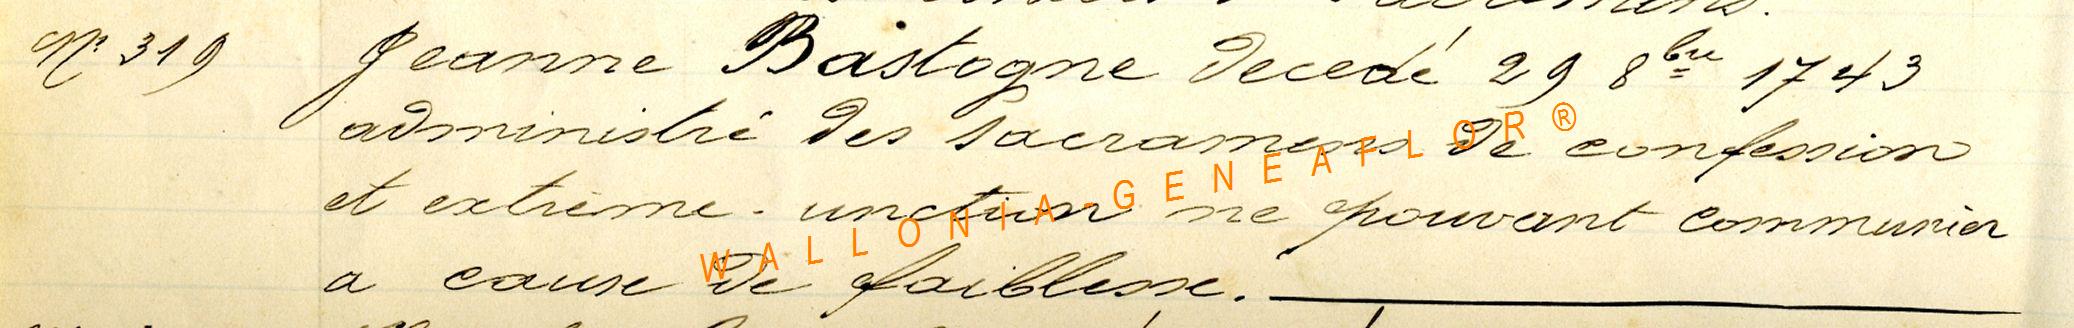 N° 319 Jeanne Bastogne decedé 29 8bre 1743
administré des sacramens de confession
et extrème-unction ne pouvant communier
a cause de faiblesse.
WALLONIA-GENEAFLOR®